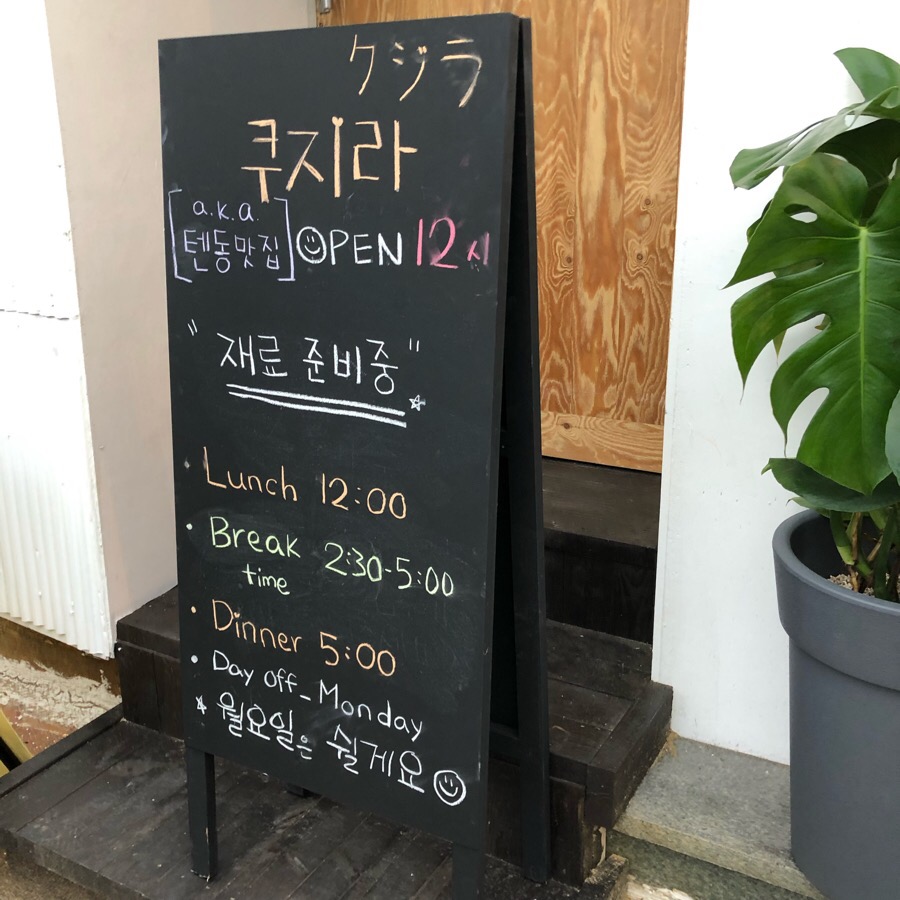 クジラ
쿠지라
[a.k.a. 텐동맛집] OPEN 12시
"재료 준비중"
Lunch 12:00
• Break time 2:30-5:00
• Dinner 5:00
• Day off_Monday
☆ 월요일은 쉴게요